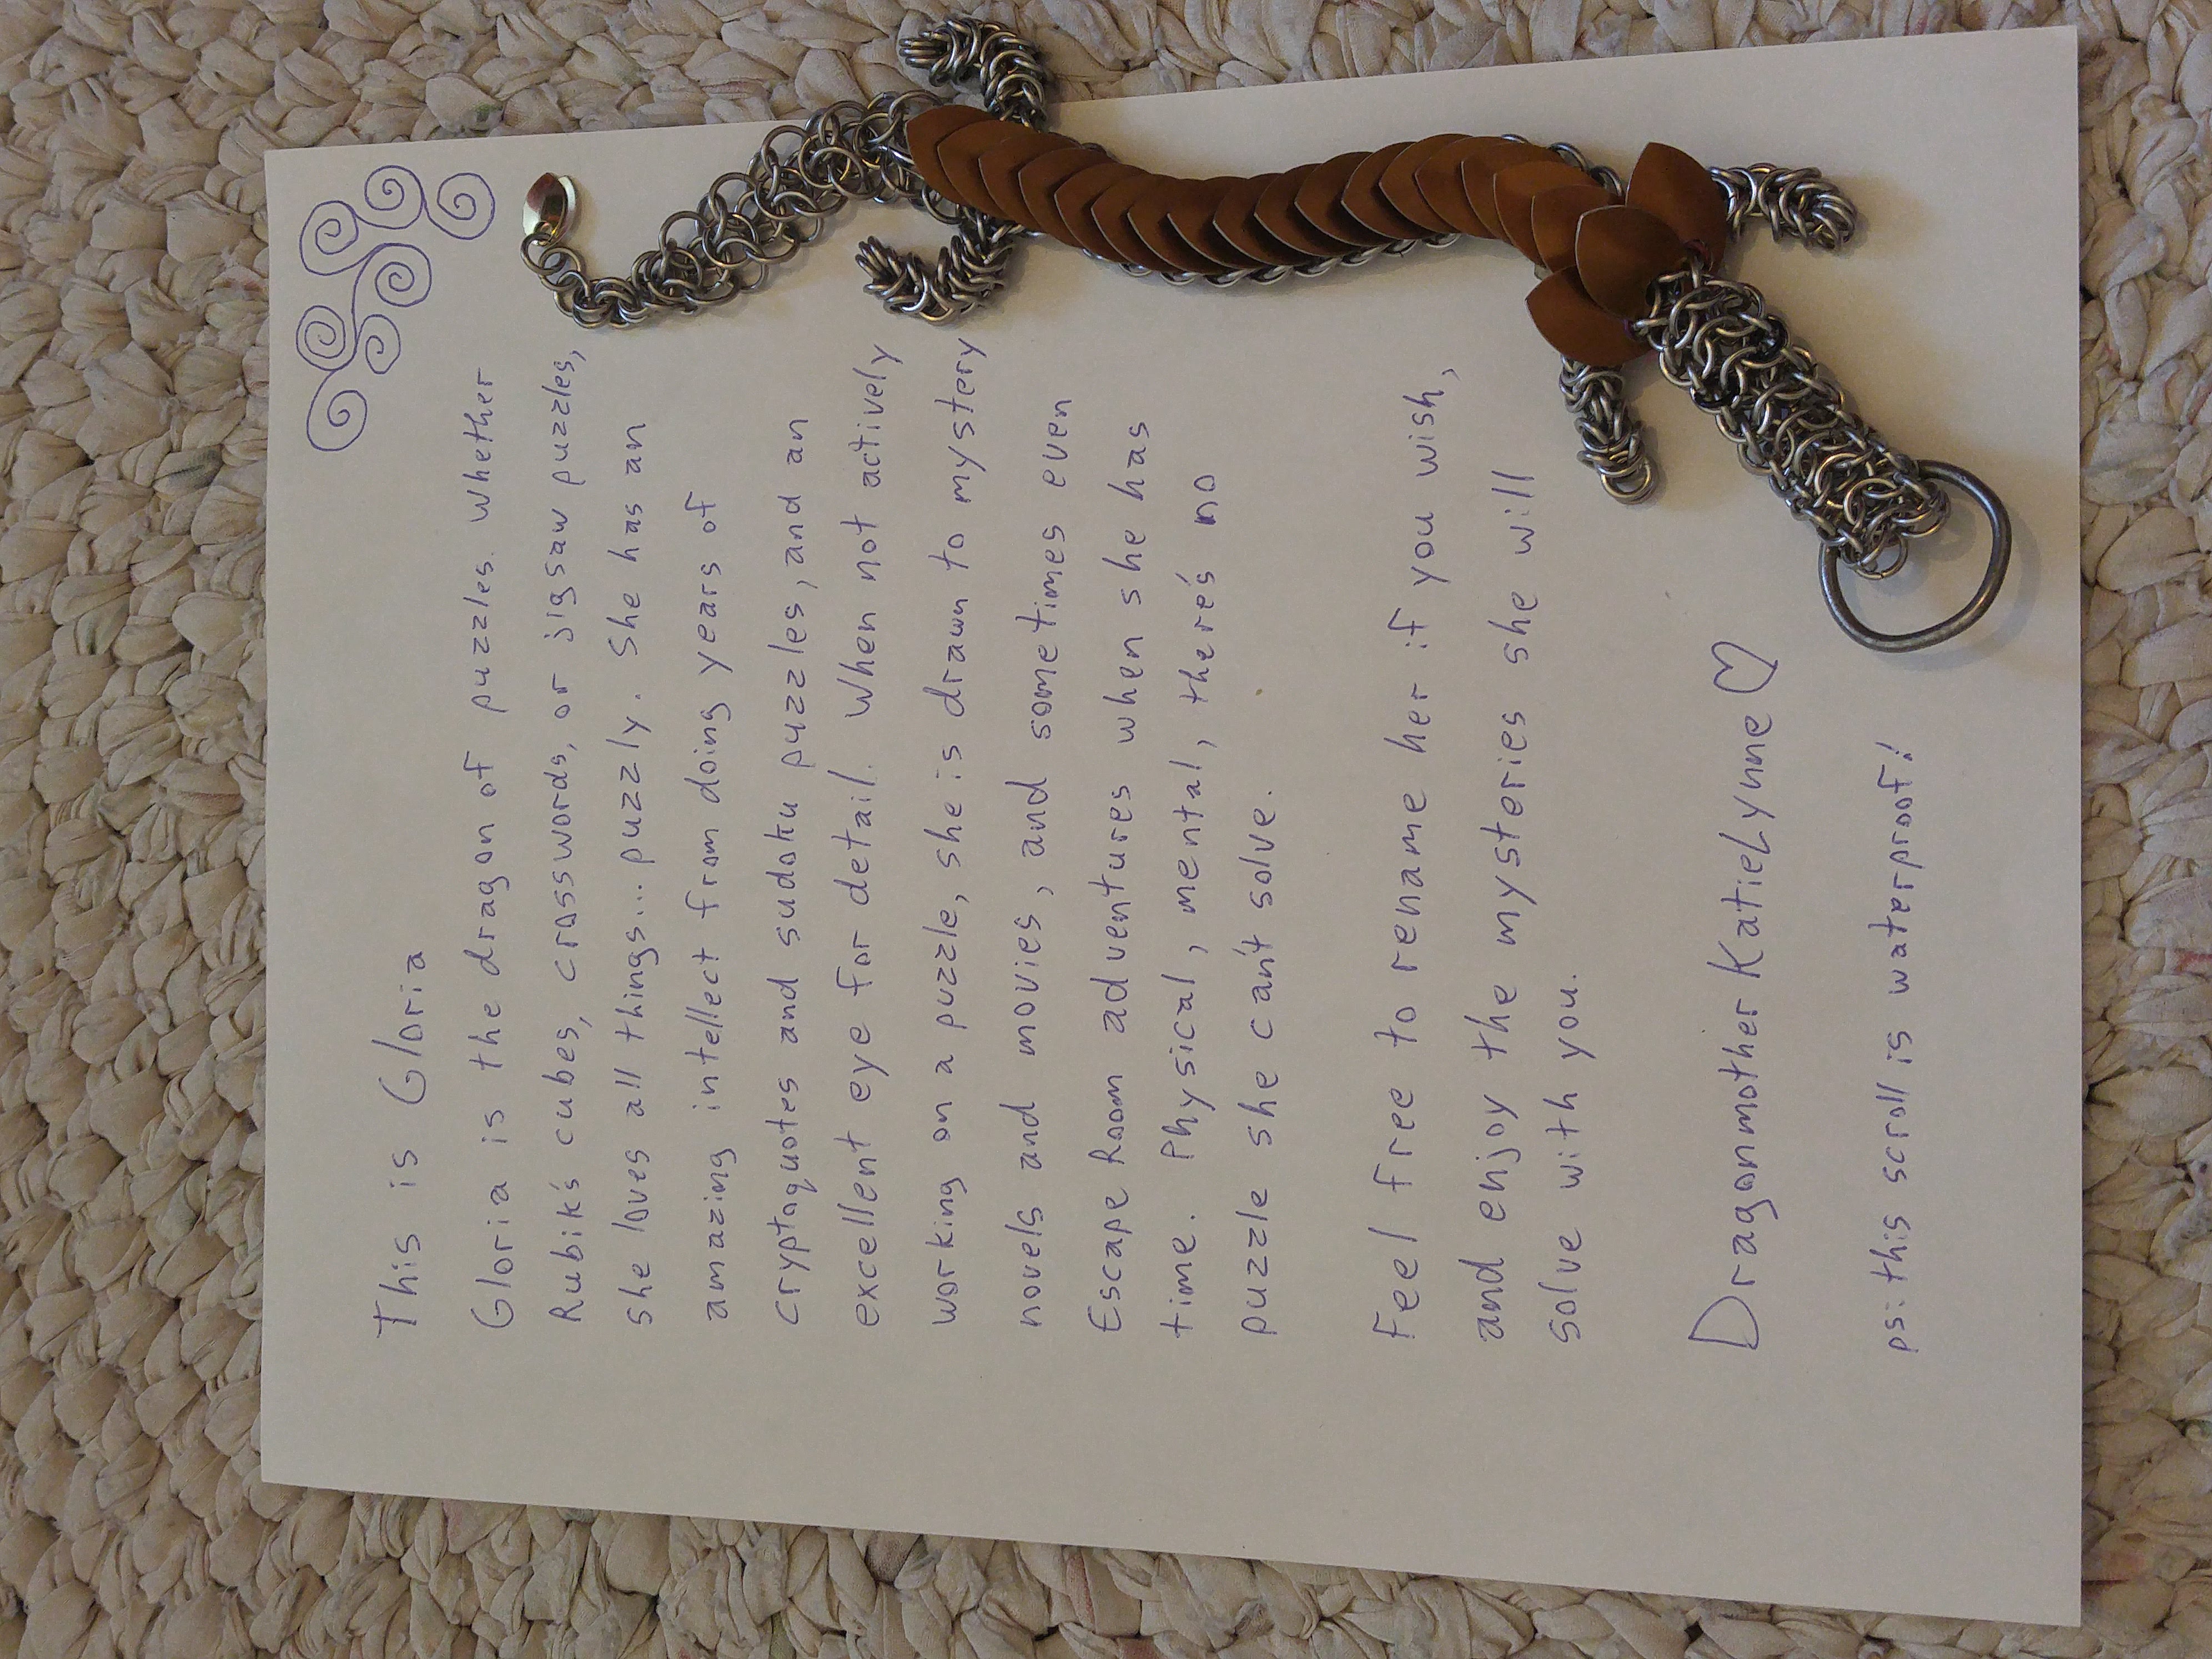 This is Gloria
Gloria is the dragon of puzzles. Whether
Rubik's cubes, crosswords, or jigsaw puzzles,
she loves all things... puzzly. She has an
amazing intellect from doing years of
cryptoquotes and sudoku puzzles, and an
excellent eye for detail. When not actively
working on a puzzle, she is drawn to mystery
novels and movies, and sometimes even
Escape Room adventures when she has
time. Physical, mental, there's no
puzzle she can't solve.
Feel free to rename her if you wish,
and enjoy the mysteries she will
solve with you.
Dragonmother KatieLynne ♡
ps: this scroll is waterproof!